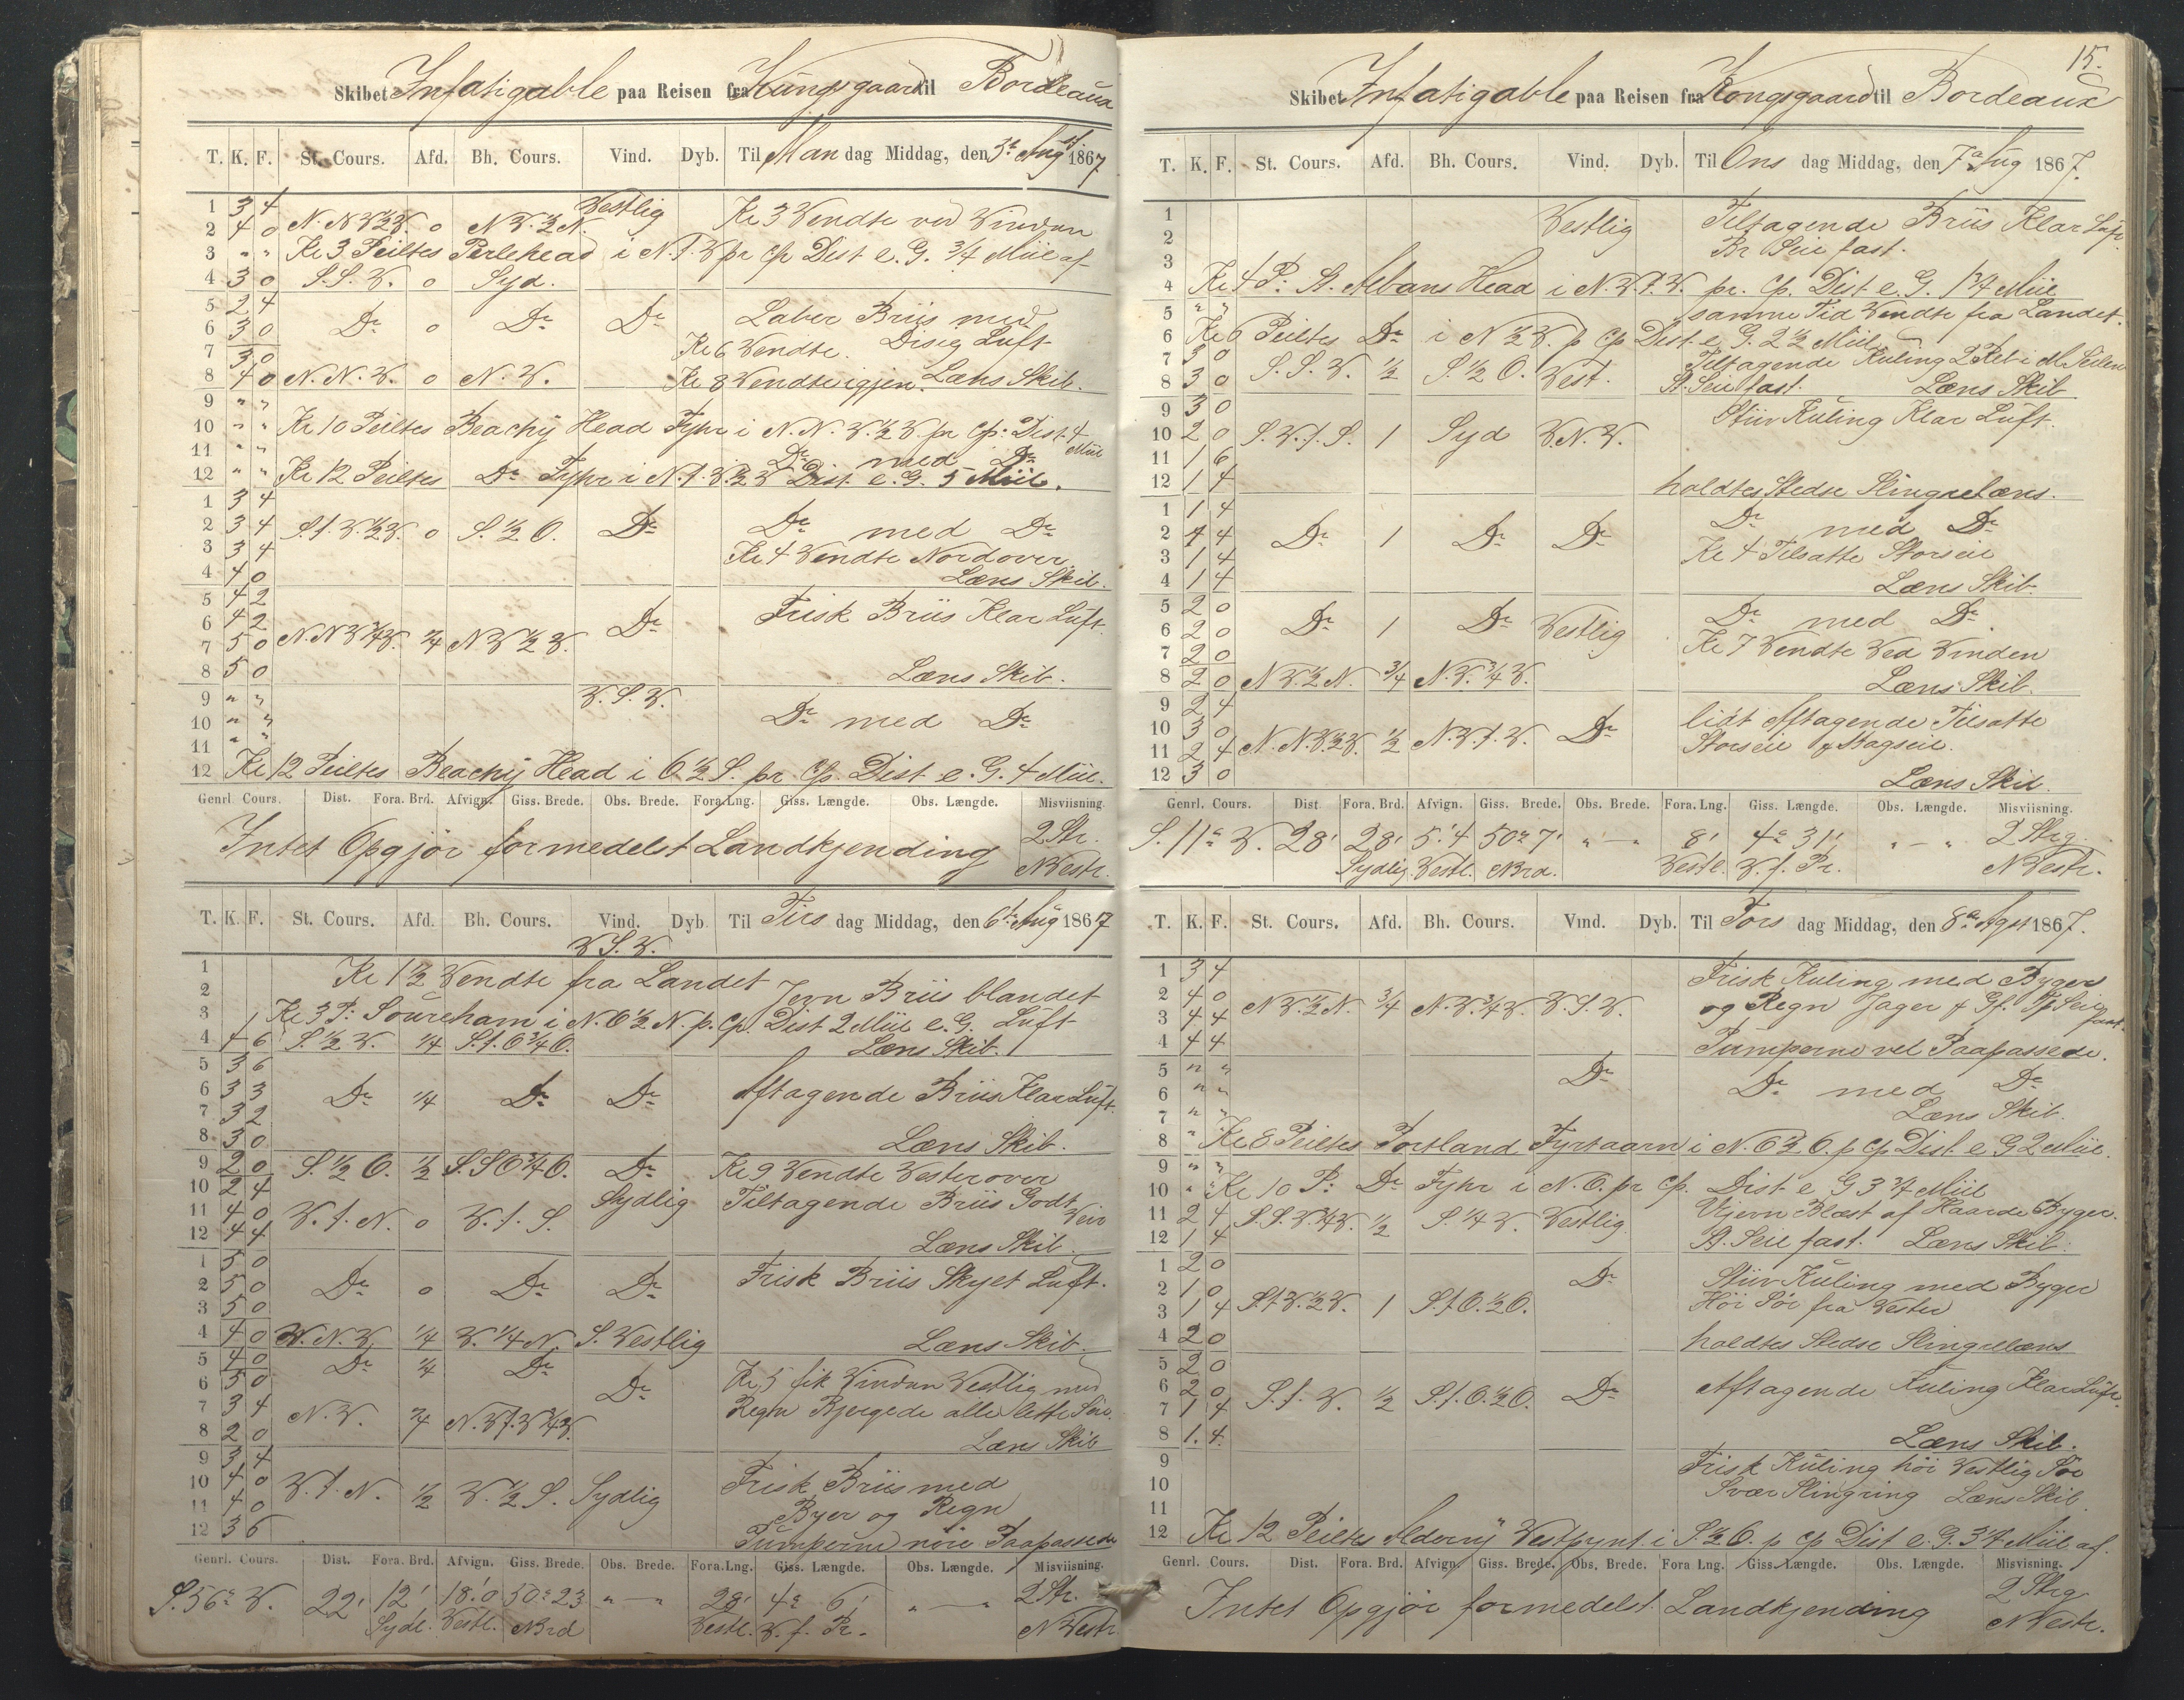 Skibet Infatigable paa Reisen fra Kungsgaard til Bordeaux
T. K. F. St. Cours. Afd. Bh. Cours. Vind. Dyb. Til Man dag Middag, den 5te Augst 1867
1 3 4 Vestlig Kl 3 Vendte ved Vinden
2 4 0 N.N.V.½V. 0 N.V.½N.
3 " " Kl 3 Peiltes Perlehead i N.t.V pr Cp Dist e.G. ¾ Miil af
4 3 0 S.S.V. 0 Syd.
5 2 4 Laber Briis med
6 3 0 Do 0 Do Do Diseg Luft
7 3 0 Kl 6 Vendte.
8 4 0 N.N.V. 0 N.V. Kl 8 Vendte igjen. Læns Skib.
9 " "
10 " " Kl 10 Peiltes Beachy Head Fyhr i N.N.V.½V. pr Cp: Dist 4 Miil
11 " " Do med Do
12 " " Kl 12 Peiltes Do Fyhr i N.t.V.½V Dist. e.G. 5 Miil.
1 3 4
2 3 4 S.t.V.½V. 0 S.½O. Do Do med Do
3 3 4 Kl 4 Vendte Nordover
4 4 0 Læns Skib.
5 4 2 Frisk Briis Klar Luft.
6 4 2 Do
7 5 0 N.N.V¾V. ¼ N.V½V.
8 5 0 Læns Skib.
9 " " V.S.V.
10 " " Do med Do
11 " "
12 Kl 12 Peiltes Beachy Head i O½S. pr. Cp. Dist e.G. 4 Miil.
Genrl. Cours. Dist. Fora. Brd. Afvign. Giss. Brede. Obs. Brede. Fora.Lng. Giss. Længde. Obs. Længde. Misviisning.
Intet Opgjør formedelst Landkjending 2 Str.
NVestr.
T. K. F. St. Cours. Afd. Bh. Cours. Vind. Dyb Til Tirs dag Middag, den 6te Aug 1867
V.S.V.
1 Kl 1½ Vendte fra Landet
2 Jevn Briis blandet
3 Kl 3 P: Soureham i N.O½N. p. Cp. Dist 2 Miil e.G. Luft
4 4 6 S.½V. ¼ S.t.O¾O. Læns Skib.
5 3 6
6 3 3 Do ¼ Do Do Aftagende Briis Klar Luft.
7 3 2
8 3 0 Læns Skib.
9 2 0 S.½O. ½ S.S.O¾O. Do Kl 9 Vendte Vesterover
10 2 4 Sydlig Tiltagende Briis Godt Veir
11 4 0 V.t.N. 0 V.t.S.
12 4 4 Læns Skib.
1 5 0
2 5 0 Do 0 Do Do Frisk Briis Skyet Luft.
3 5 0
4 4 0 V.N.V. ¼ V.¼N. S.Vestlig Læns Skib.
5 4 0 Do ¼ Do
6 5 0 Do Kl 5 fik Vinden Vestlig med
7 3 4 Regn Bjergede alle lette Seil.
8 2 0 N.V. ¾ N.V.t.V¾V. Læns Skib
9 3 4
10 4 0 V.t.N. ½ V.½S. Sydlig Frisk Briis med
11 4 0 Byer og Regn
12 3 6 Pumperne nøie Paapassede
Genrl. Cours. Dist. Fora. Brd. Afvign. Giss. Brede. Obs. Brede. Fora.Lng. Giss. Længde. Obs. Længde. Misviisning.
S.56° V. 22' 12' 18'.0 50° 23 " — " 28' 4° 6' " — " 2 Str.
Sydl. Vestl. Nrd Vestl. V. f. Pr. NVestr
15.
Skibet Infatigable paa Reisen fra Kongsgaard til Bordeaux
T. K. F. St. Cours. Afd. Bh. Cours. Vind. Dyb. Til Ons dag Middag, den 7de Aug 1867.
1 Vestlig Tiltagende Briis Klar Luft
2 Br Seil fast.
3
4 Kl 4 P: St. Albans Head i N.V.t.V. pr. Cp. Dist e.G. 1¾ Miil
5 " " samme Tid Vendte fra Landet.
6 Kl 6 Peiltes Do i N½V. p Cp Dist e.G. 2½ Miil
7 3 0 S.S.V. ½ S.½O. Vest. Tiltagende Kuling 2 Reb i M.Seilene
8 3 0 St. Seil fast. Læns Skib
9 3 0 Stiiv Kuling Klar Luft.
10 2 0 S.V.t.S. 1 Syd V.N.V.
11 1 6
12 1 4 holdtes Stedse Slingrelæns.
1 1 4 Do med Do
2 1 4 Do 1 Do Do
3 1 4 Kl 4 Tilsatte Storseil
4 1 4 Læns Skib.
5 2 0 Do med Do
6 2 0 Do 1 Do Vestlig
7 2 0 Kl 7 Vendte Ved Vinden
8 2 0 N.V.½N. ¾ N.V.¾V. Læns Skib.
9 2 4 lidt Aftagende Tilsatte
10 3 0 Do Storseil & Bagseil.
11 2 4 N.N.V.½V. ½ N.V.t.V.
12 3 0 Læns Skib.
Genrl. Cours. Dist Fora. Brd. Afvign. Giss. Brede. Obs. Brede. Fora. Lng. Giss. Længde. Obs. Længde. Misviisning.
S. 11° V. 28' 28' 5'.4 50° 7' " — " 8' 4° 31' " — " 2 Strg.
Sydlig. Vestl. Nrd. Vestl. V. f. Pr. NVestr.
T. K. F. St. Cours. Afd. Bh. Cours. Vind. Dyb. Til Tors dag Middag, den 8de Augst 1867.
1 3 4 Frisk Kuling med Byger
2 4 0 N.V.½N. ¾ N.V.¾V. V.S.V. og Regn Jager & Gf. Tp Seil fast.
3 4 4
4 4 4 Pumperne vel Paapassede.
5 " " Do
6 " " Do med Do
7 " " Læns Skib.
8 " Kl 8 Peiltes Portland Fyrtaarn i N.O½O. p Cp Dist e G 2 Miil.
9 " "
10 " " Kl 10 P: Do Fyhr i N.O. pr Cp. Dist e G 3¾ Miil
11 2 4 S.S.V.¾V. ½ S.¼V. Vestlig Ujevn Blæst af Haarde Byger.
12 1 4 St. Seil fast. Læns Skib.
1 2 0 Do
2 1 0 Stiiv Kuling med Byger
3 1 4 S.t.V.½V. 1 S.t.O.½O. Høi Sø fra Vester
4 2 0 holdtes Stedse Slingrelæns
5 2 0
6 2 0 S.t.V. ½ S.t.O.½O. Do Aftagende Kuling Klar Luft.
7 1 4
8 1. 4. Læns Skib.
9 Frisk Kuling høi Vestlig Sø
10 Svær Slingring Læns Skib
11
12 Kl 12 Peiltes Alderny Vestpynt i S½O. p Cp Dist e.G. 3¼ Miil af.
Genrl. Cours. Dist. Fora. Brd. Afvign Giss. Brede. Obs. Brede. Fora Lng. Giss. Længde. Obs. Længde. Misvisning.
Intet Opgjør formedelst Landkjending 2 Strg
NVestr.